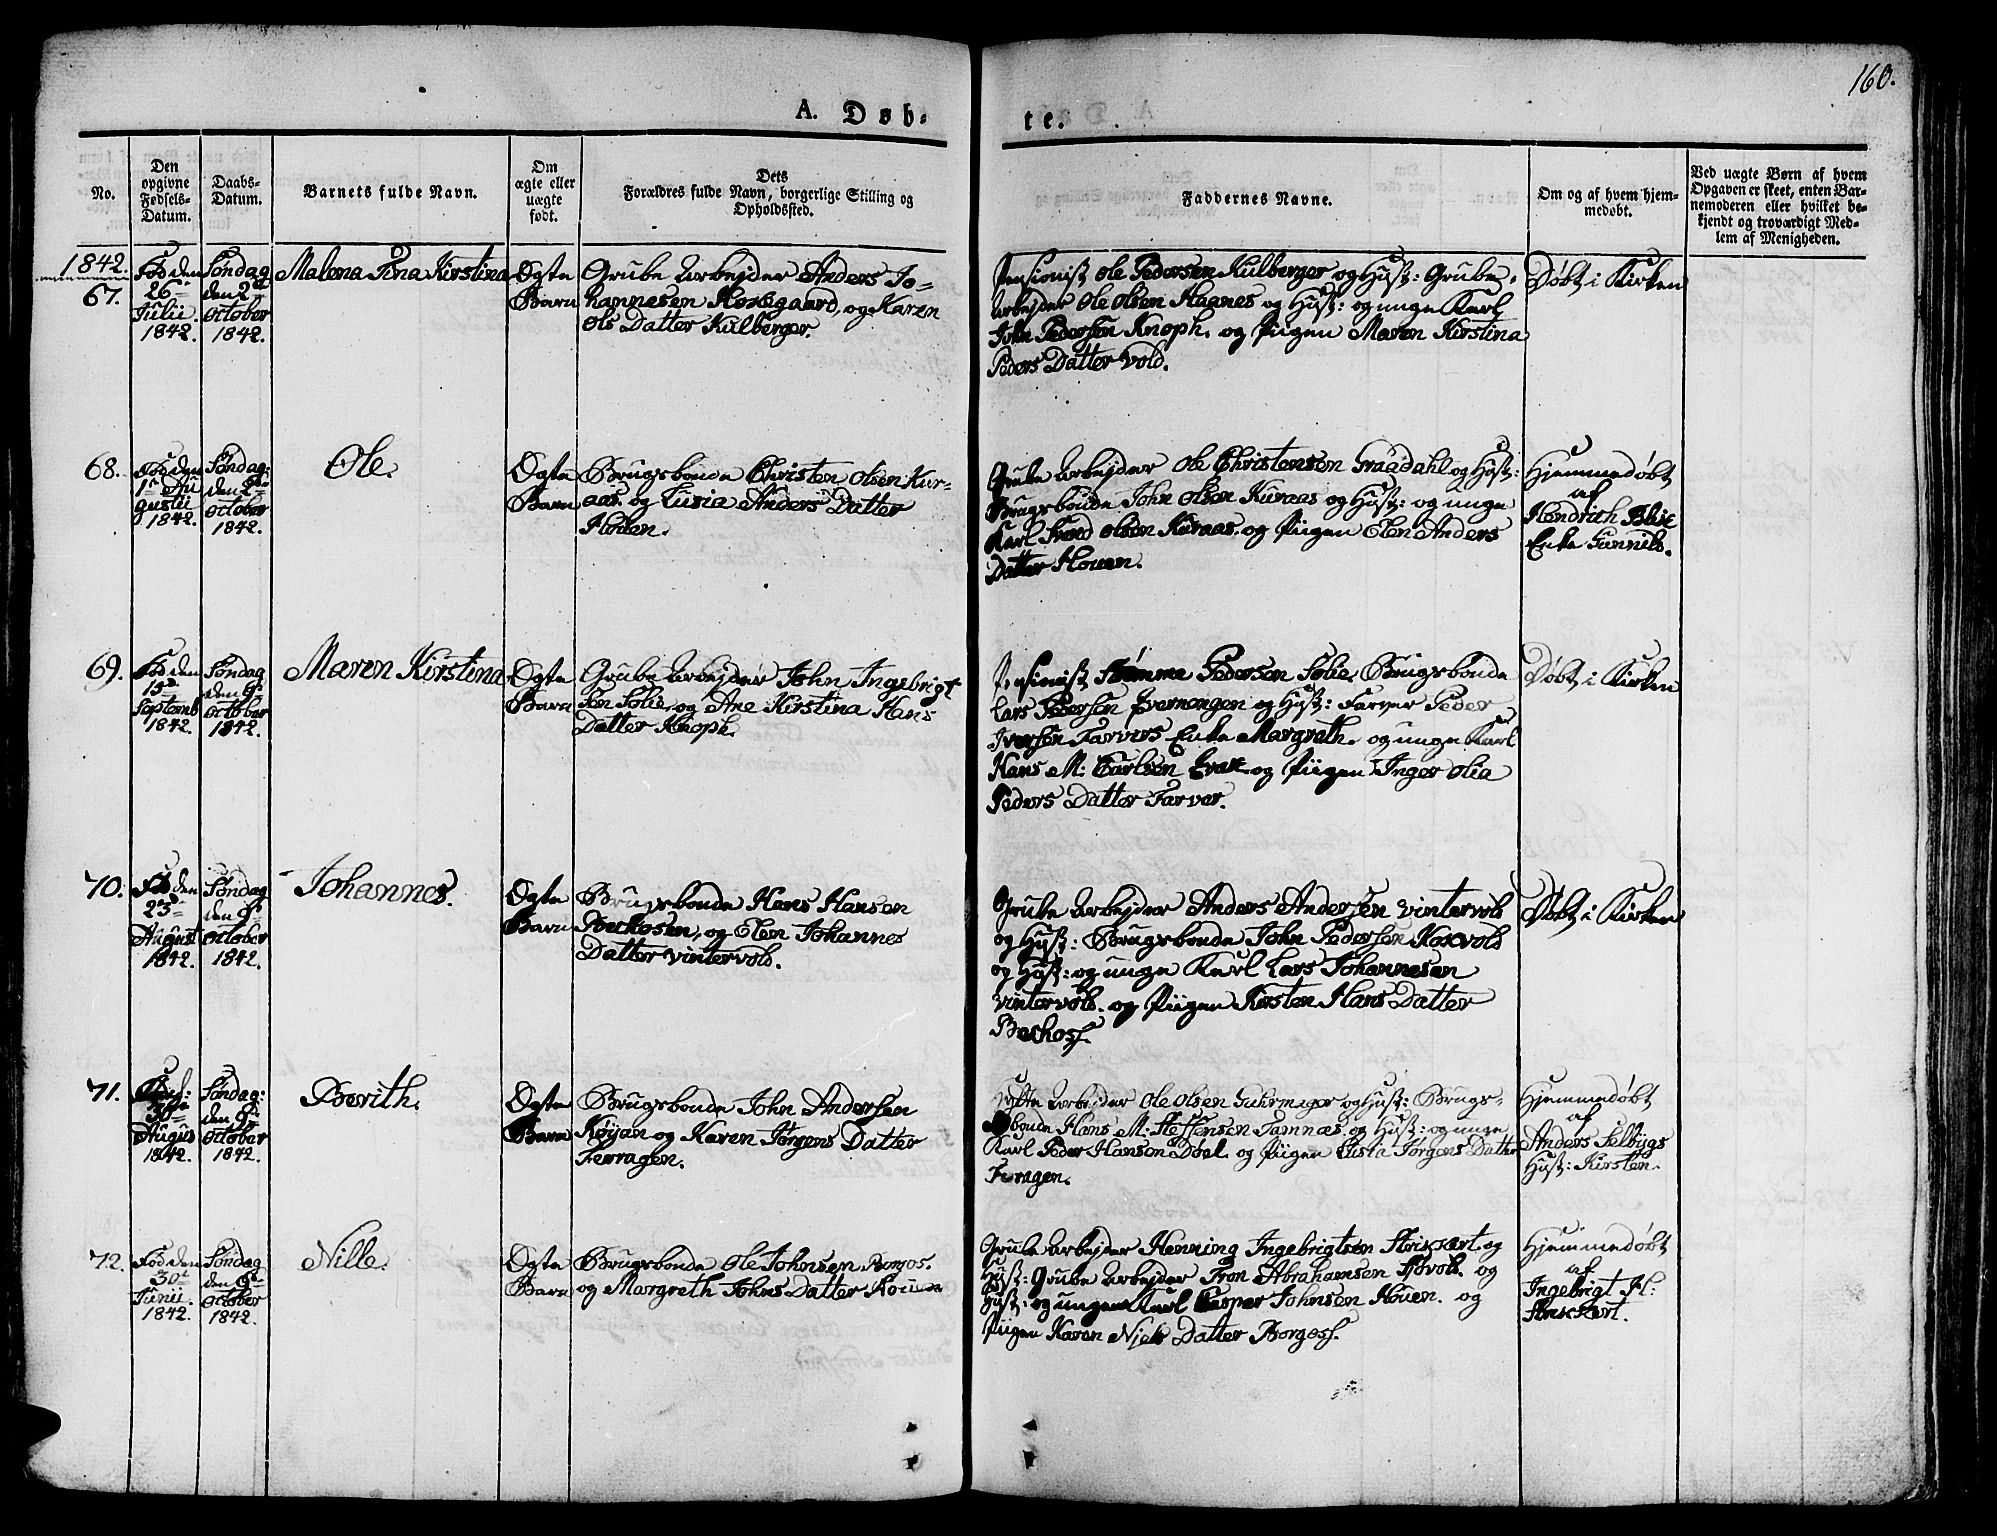 160.
A. Døb-
te.
No.
Den opgivne Fødsels-Datum.
Daabs-Datum.
Barnets fulde Navn.
Om ægte eller uægte født.
Dets
Forældres fulde Navn, borgerlige Stilling og
Opholdssted.
Faddernes Navne.
Om og af hvem hjem-
medøbt.
Ved uægte Børn af hvem
Opgaven er skeet, enten Bar-
nemoderen eller hvilket be-
kjendt og troværdigt Med-
lem af Menigheden.
1842.
67.
Fød den
26de
Julii
1842.
Søndag
den 2de
October
1842.
Malena Tina Kirstina
Ægte
Barn
Grube Arbejder Anders Jo-
hannesen Kokegaard, og Karen
Ols Datter Kulberger.
Pensionist Ole Pedersen Kulberger og Hust: Grube-
Arbejder Ole Olsen Haanes og Hust: og unge Karl
John Pedersen Knoph. og Piigen Maren Kirstina
Peders Datter Vold.
Døbt i Kirken
68.
Fød den
1ste Au
gustii
1842.
Søndag:
den 2de
October
1842.
Ole.
Ægte
Barn
Brugsbonde Christen Olsen Kur-
aas. og Lusia Anders Datter
Houen.
Grube Arbejder Ole Christensen Graadahl og Hust:
Brugsbonde John Olsen Kuraas og Hust: og unge
Karl Svend Olsen Kuraas. og Piigen Elen Anders
Datter Houen.
Hjemmedøbt
af
Hendrich
Enke Gunnild.
69.
Fød den
15de
Septemb
1842.
Søndag
den 9de
October
1842.
Maren Kirstina
Ægte
Barn
Grube Arbejder John Ingebrigt
sen Solie, og Ane Kirstina Hans
Datter Knoph.
Pensionist Pedersen Solie, Brugsbonde
Lars Pedersen og Hust: Farver Peder
Iversen Farvers Enke Margreth. og unge Karl
Hans M: Carlsen og Piigen Inger Olia
Peders Datter Farver.
Døbt i Kirken
70.
Fød den
23de
August
1842.
Søndag
den 9de
October
1842.
Johannes.
Ægte
Barn
Brugsbonde Hans Hansen
Beckosen, og Elen Johannes
Datter Vintervold.
Grube Arbejder Anders Andersen Vintervold
og Hust: Brugsbonde John Pedersen Kokvold
og Hust: og unge Karl Lars Johannesen
Vintervold. og Piigen Kirsten Hans Datter
Beckoss.
Døbt i Kirken
71.
30te
Augus
1842.
Søndag:
den 9de
October
1842.
Berith.
Ægte
Barn
Brugsbonde John Andersen
Kojan og Karen Jørgens Datter
Feragen.
Hytte Arbejder Ole Olsen og Hust: Brugs-
bonde Hans M: Steffensen Tamnæs og Hust: og unge
Karl Peder Hansen Doel. og Piigen Lusia Jørgens Datter
Feragen.
Hjemmedøbt
af
Anders Selbygs
Hust: Kirsten.
72.
Fød den
30te
Junii
1842.
Søndag
den 9de
October
1842.
Nille.
Ægte
Barn
Brugsbonde Ole Johnsen Borgos.
og Margreth Johns Datter Houen
Grube Arbejder Henning Ingebrigtsen Strickert. og
Hust: Grube Arbejder Tron Abrahamsen og
Hust: og ungen Karl Casper Johnsen Houen. og
Piigen Karen Niels Datter Borgoss.
Hjemmedøbt
af
Ingebrigt H:
Strickert.